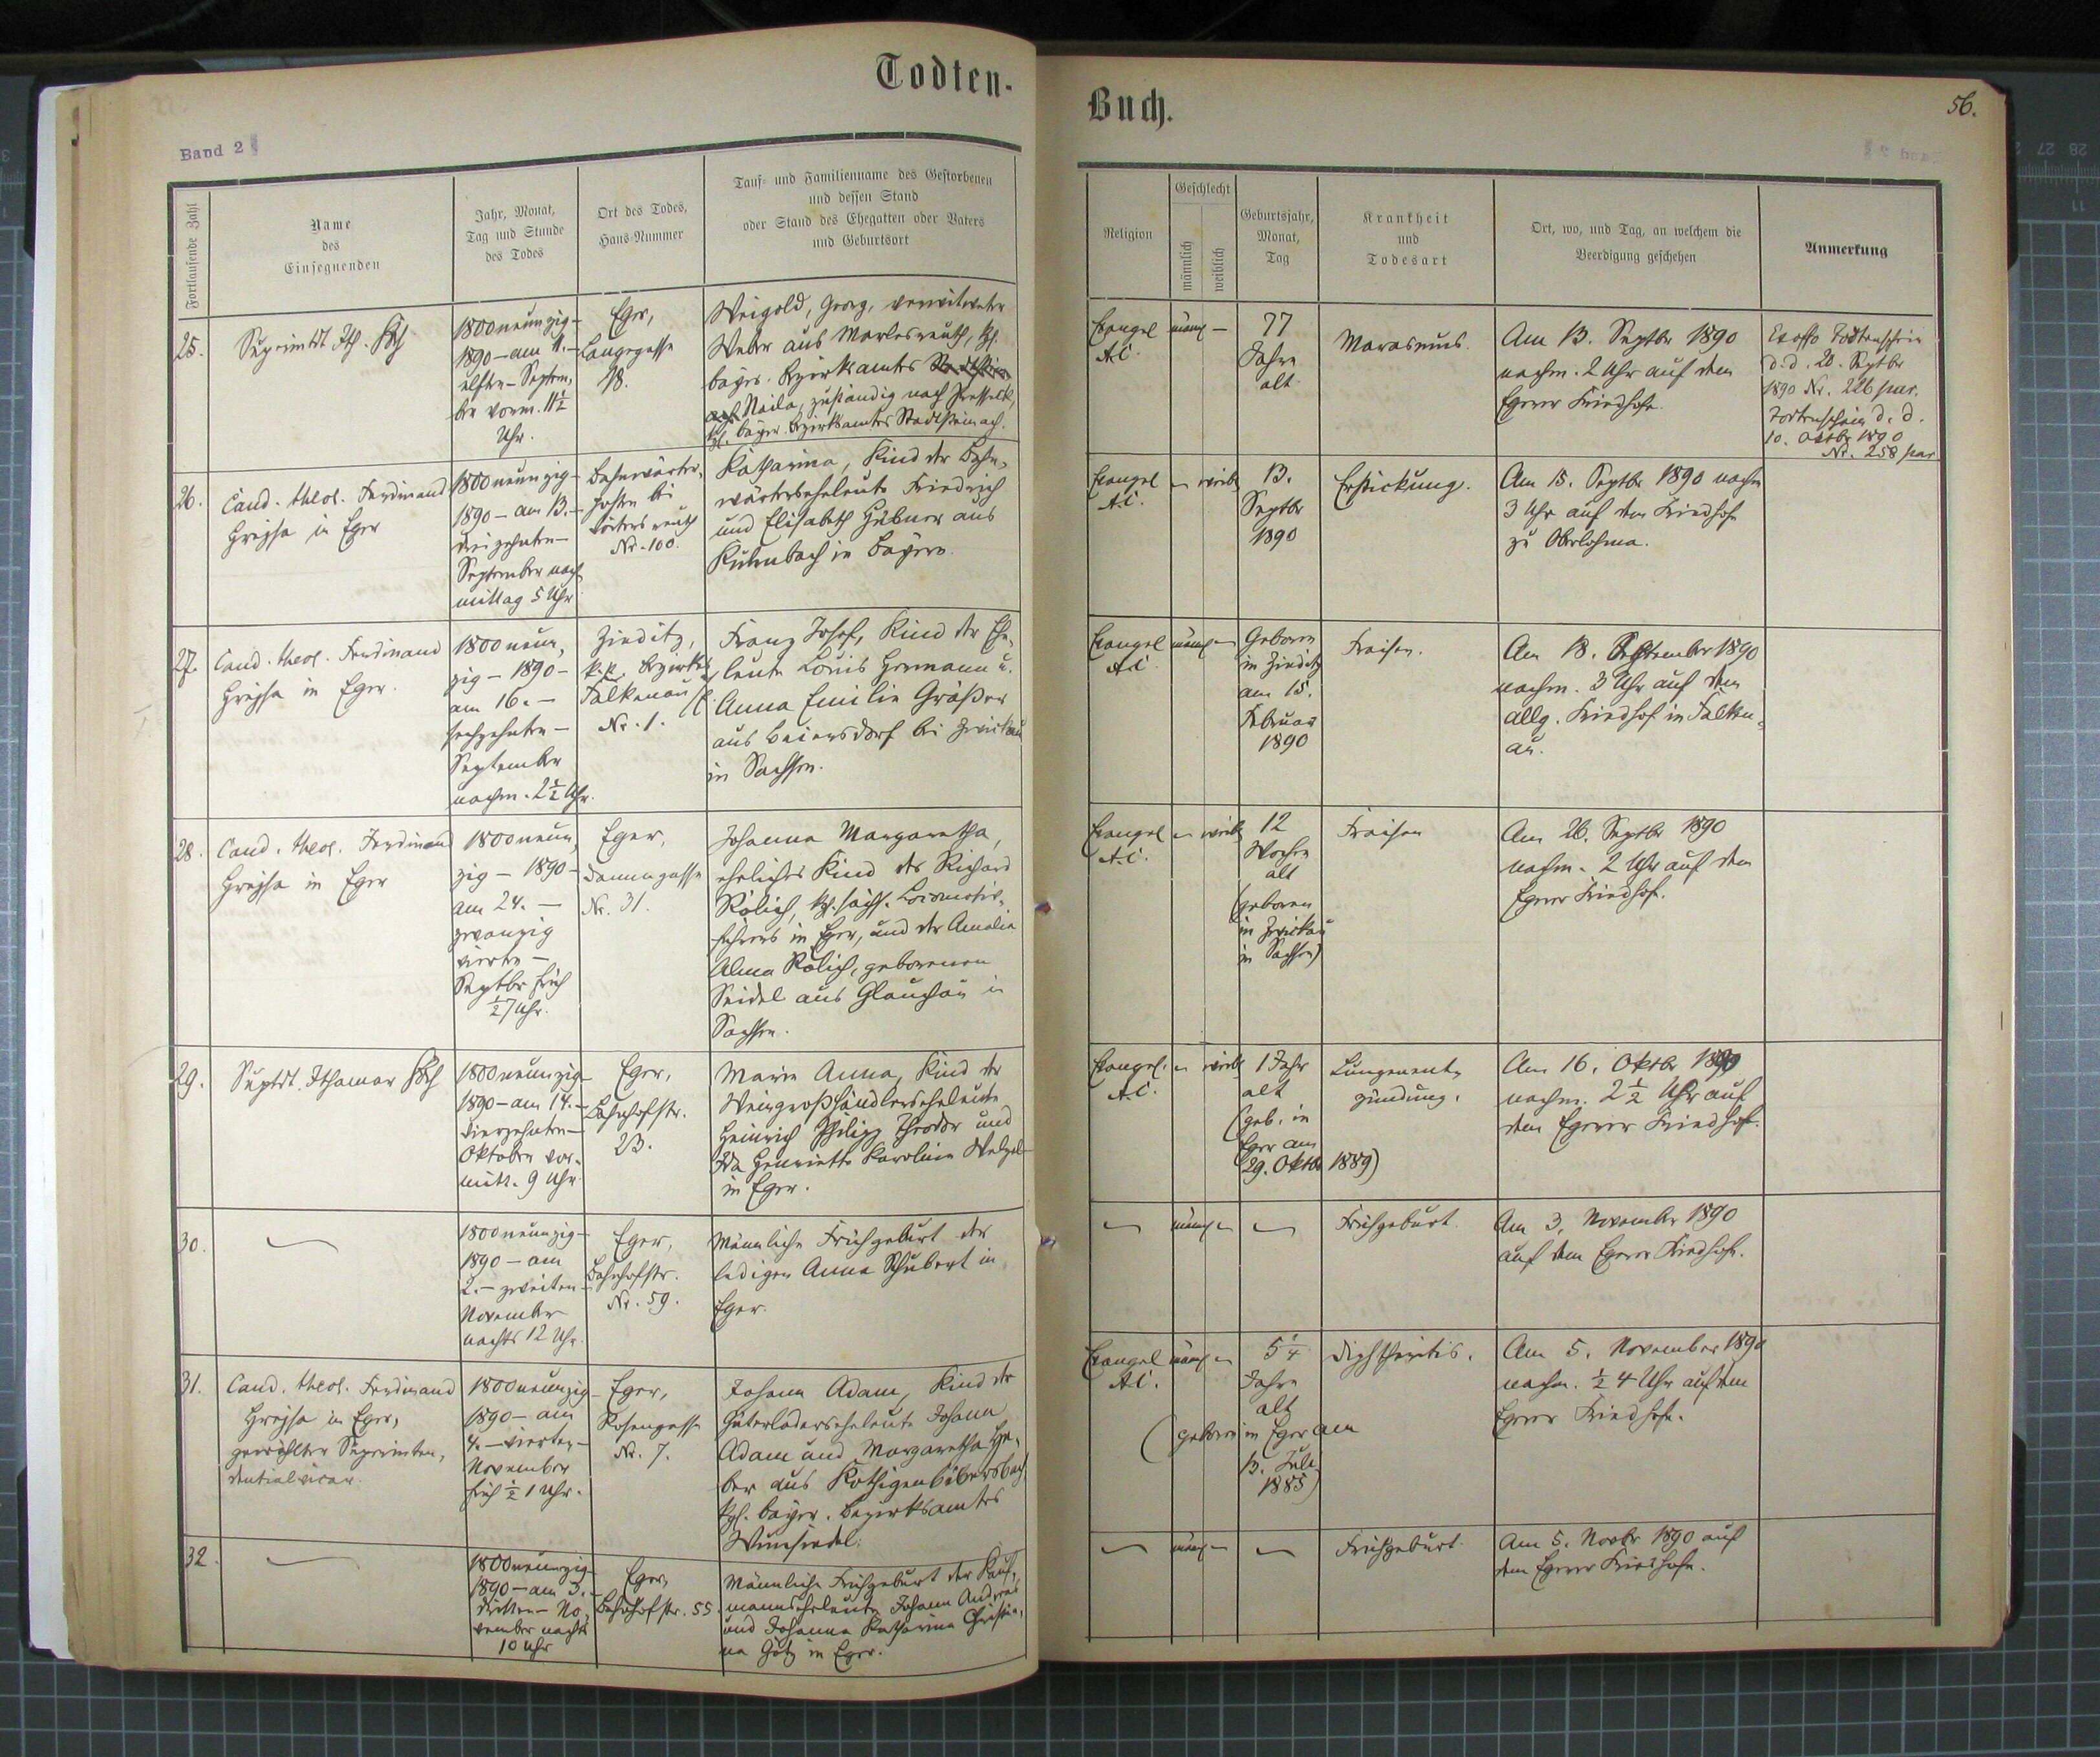 Todten-
Buch.
56.
Band 2
Fortlaufende Zahl
Name
des
Einsegnenden
Jahr, Monat,
Tag und Stunde
des Todes
Ort des Todes,
Haus-Nummer
Tauf- und Familienname des Gestorbenen
und dessen Stand
oder Stand des Ehegatten oder Vaters
und Geburtsort
Religion
Geschlecht
männlich
weiblich
Geburtsjahr,
Monat,
Tag
Krankheit
und
Todesart
Ort, wo, und Tag, an welchem die
Beerdigung geschehen
Anmerkung
25.
Suprintdt Ith.
1800neunzig-
1890-am 11.-
elften-Septem-
ber vorm. 11½
Uhr.
Eger,
Langegasse
18.
Weigold, Georg, verwitweter
Weber aus Marlesreuth, kgl.
bayer. Bezirksamtes
Naila, zuständig nach Presseck,
kgl. bayer. Bezirksamtes Stadtsteinach.
Evangel
A.C.
männl -
77
Jahre
alt
Marasmus.
Am 13. Septbr 1890
nachm. 2 Uhr auf dem
Egerer Friedhofe.
Ex offo Todtenschein
d.d. 20. Septbr
1890 Nr. 226 par.
Todtenschein d.d.
10. Oktbr 1890
Nr. 258 par.
26.
Cand. theol. Ferdinand
Hrejsa in Eger
1800neunzig-
1890-am 13.-
dreizehnten-
September nach
mittag 5 Uhr
Bahnwärter-
posten bei
Nr. 100.
Katharina, Kind der Bahn-
wärterseheleute Friedrich
und Elisabeth Hübner aus
Kulmbach in Bayern.
Evangel
A.C.
- weibl
13.
Septbr
1890
Erstickung.
Am 15. Septbr 1890 nachm
3 Uhr auf dem Friedhofe
zu Oberlohma.
27.
Cand. theol. Ferdinand
Hrejsa in Eger.
1800neun-
zig-1890-
am 16.-
sechzehnten-
September
nachm. 2½ Uhr.
Zieditz,
k.k. Bezirkes
Falkenau
Nr. 1.
Franz Josef, Kind der Ehe-
leute Louis Hermann u.
Anna Emilie Gräßer
aus Beiersdorf bei Zwickau
in Sachsen.
Evangel
A.C.
männl -
Geboren
in Zieditz
am 15.
Februar
1890
Fraisen.
Am 18. September 1890
nachm. 3 Uhr auf dem
allg. Friedhof in Falken-
au.
28.
Cand. theol. Ferdinand
Hrejsa in Eger
1800neun
zig-1890-
am 24.-
zwanzig
vierten-
Septbr früh
½7 Uhr.
Eger,
Dammgasse
Nr. 31.
Johanna Margaretha,
eheliches Kind des Richard
Rölich, kgl. sächs. Locomotiv-
führers in Eger, und der Amalie
Alma Rölich, geborenen
Seidel aus Glauchau in
Sachsen.
Evangel
A.C.
- weibl
12
Wochen
alt
(geboren
in Zwickau
in Sachsen)
Fraisen
Am 26. Septbr 1890
nachm. 2 Uhr auf dem
Egerer Friedhof.
29.
Suptdt. Ithamar
1800neunzig-
1890-am 14.-
vierzehnten-
Oktober vor-
mitt. 9 Uhr
Eger,
Bahnhofstr.
23.
Marie Anna, Kind der
Weingroßhändlerseheleute
Heinrich Philipp Theodor und
Ida Henriette Karoline Welzel
in Eger.
Evangel.
A.C.
- weibl
1 Jahr
alt
(geb. in
Eger am
29. Oktbr 1889)
Lungenent-
zündung.
Am 16. Oktbr 1890
nachm. 2½ Uhr auf
dem Egerer Friedhof.
30.
1800neunzig-
1890-am
2.-zweiten-
November
nachts 12 Uhr.
Eger,
Bahnhofstr.
Nr. 59.
Männliche Frühgeburt der
ledigen Anna Schubert in
Eger.
männl -
Frühgeburt.
Am 3. November 1890
auf dem Egerer Friedhofe.
31.
Cand. theol. Ferdinand
Hrejsa in Eger,
gewählter Superinten-
dentialvicar.
1800neunzig-
1890-am
4.-vierten-
November
früh ½ 1 Uhr.
Eger,
Rosengasse
Nr. 7.
Johann Adam, Kind der
Güterladerseheleute Johann
Adam und Margaretha He-
ber aus Röthigenbibersbach
kgl. bayer. Bezirksamtes
Wunsiedel.
Evangel
A.C.
männl -
5¼
Jahre
alt
(geboren in Eger am
13. Juli
1885)
Diphtheritis.
Am 5. November 1890
nachm. ½ 4 Uhr auf dem
Egerer Friedhofe.
32.
1800neunzig-
1890-am 3.-
dritten-No-
vember nachts
10 Uhr
Eger,
Bahnhofstr. 55.
Männliche Frühgeburt der Kauf-
mannseheleute Johann Andreas
und Johanna Katharina Christia-
na Götz in Eger.
männl -
Frühgeburt.
Am 5. Novbr 1890 auf
dem Egerer Friedhofe.